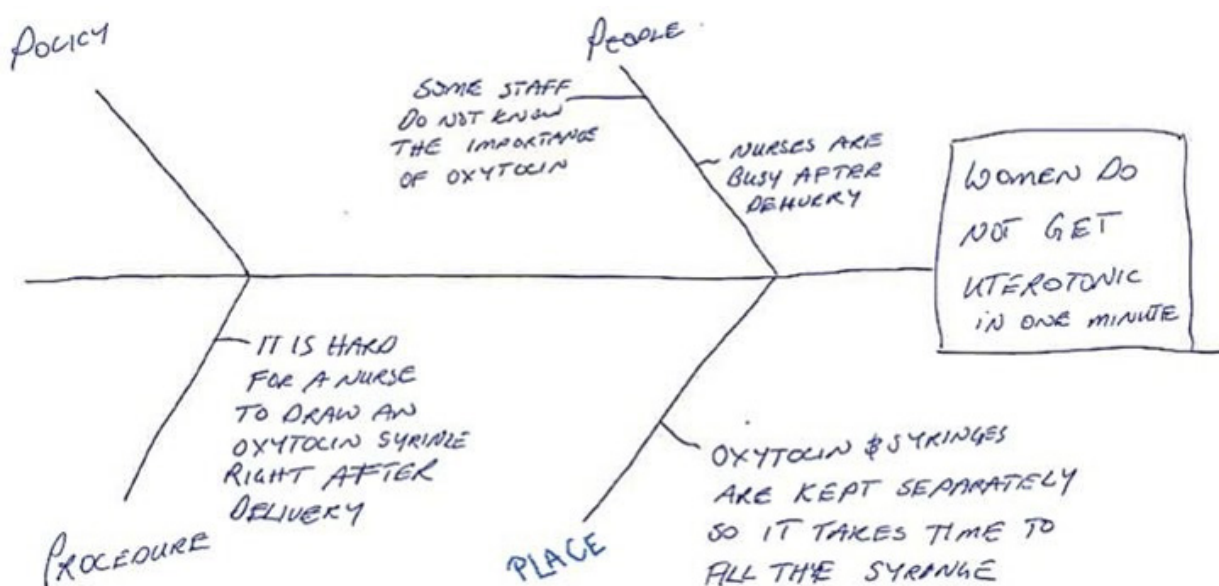 POLICY
PEOPLE
SOME STAFF
DO NOT KNOW
THE IMPORTANCE
OF OXYTOCIN
NURSES ARE
BUSY AFTER
DEHURRY
WOMEN DO
NOT GET
UTEROTONIC
IN ONE MINUTE
IT IS HARD
FOR A NURSE
TO DRAW AN
OXYTOCIN SYRINGE
RIGHT AFTER
DELIVERY
PROCEDURE
OXYTOCIN & SYRINGES
ARE KEPT SEPARATELY
SO IT TAKES TIME TO
FILL THE SYRANGE
PLACE